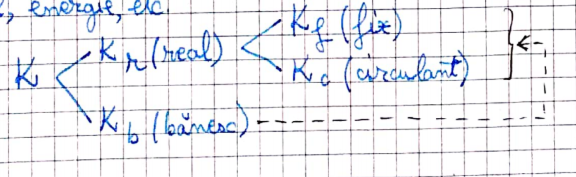 , energie, etc
K_f (fix)
K_r (real)
K
K_c (circulant)
K_b (bănesc)